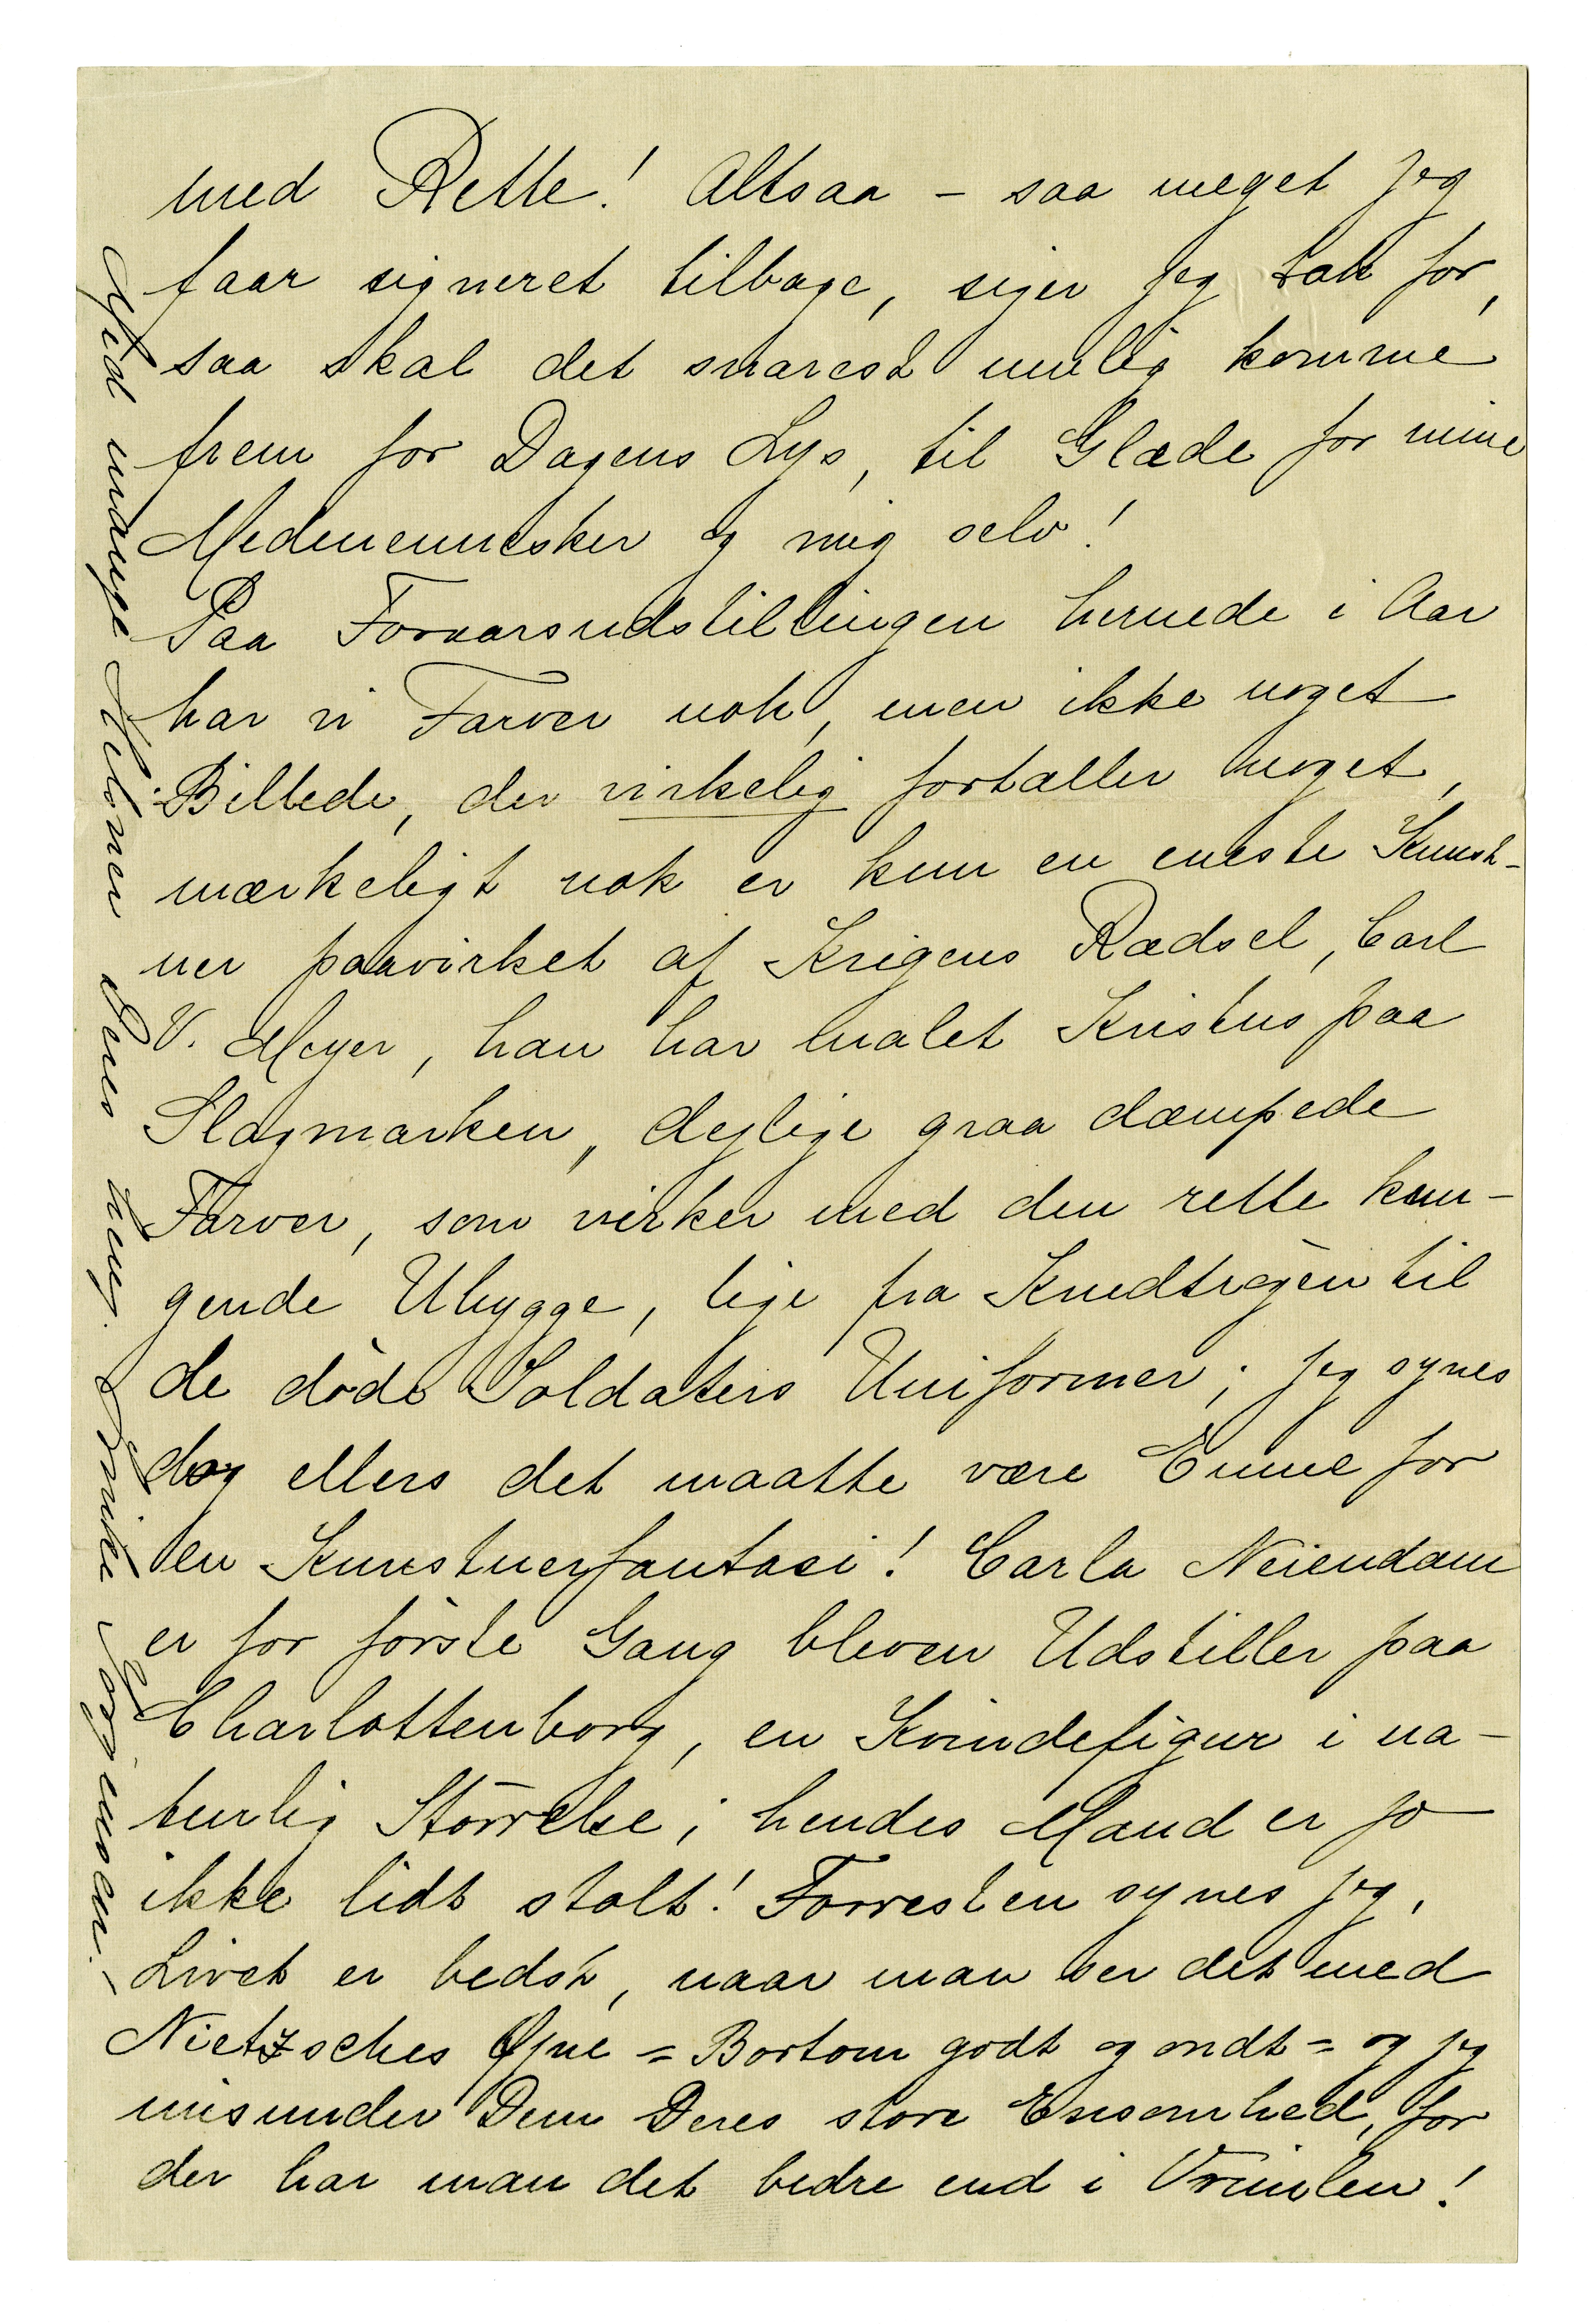 med Rette! Altsaa - saa meget jeg
faar signeret tilbage, siger jeg Tak for,
saa skal det snarest mulig komme
frem for Dagens Lys, til Glæde for mine
Medmennesker og mig selv!
Paa Foraarsudstillingen hernede i Aar
har vi Farver nok, men ikke noget
Billede, der virkelig fortæller noget,
mærkeligt nok er kun en eneste Kunst-
ner paavirket af Krigens Rædsel, Carl
V. Meyer, han har malet Kristus paa
Slagmarken, dejlige graa dæmpede
Farver, som virker med den rette kn-
gende Uhygge, lige fra Krudtrøgen til
de døde Soldaters Uniformer; jeg synes
dog ellers det maatte være Emne for
en Kunstnerfantasi! Carla Neiendam
er for første Gang bleven Udstiller paa
Charlottenborg, en Kvindefigur i na-
turlig Størrelse; hendes Mand er jo
ikke lidt stolt! Forresten synes jeg,
Livet er bedst, naar man ser det med
Nietzsches Øjne = Bortom godt og ondt = og jeg
misunder Dem Deres store Ensomhed, for
der har man det bedre end i Vrimlen!
Med mange Hilsner Deres heng. Jörgensen. -